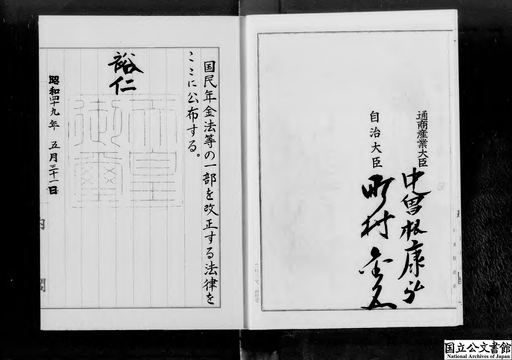 通商産業大臣
中曽根康弘
自治大臣
町村金五
国民年金法等の一部を改正する法律を
ここに公布する。
裕仁
天皇
御璽
昭和四十九年 五月三十一日
内閣
国立公文書館
National Archives of Japan